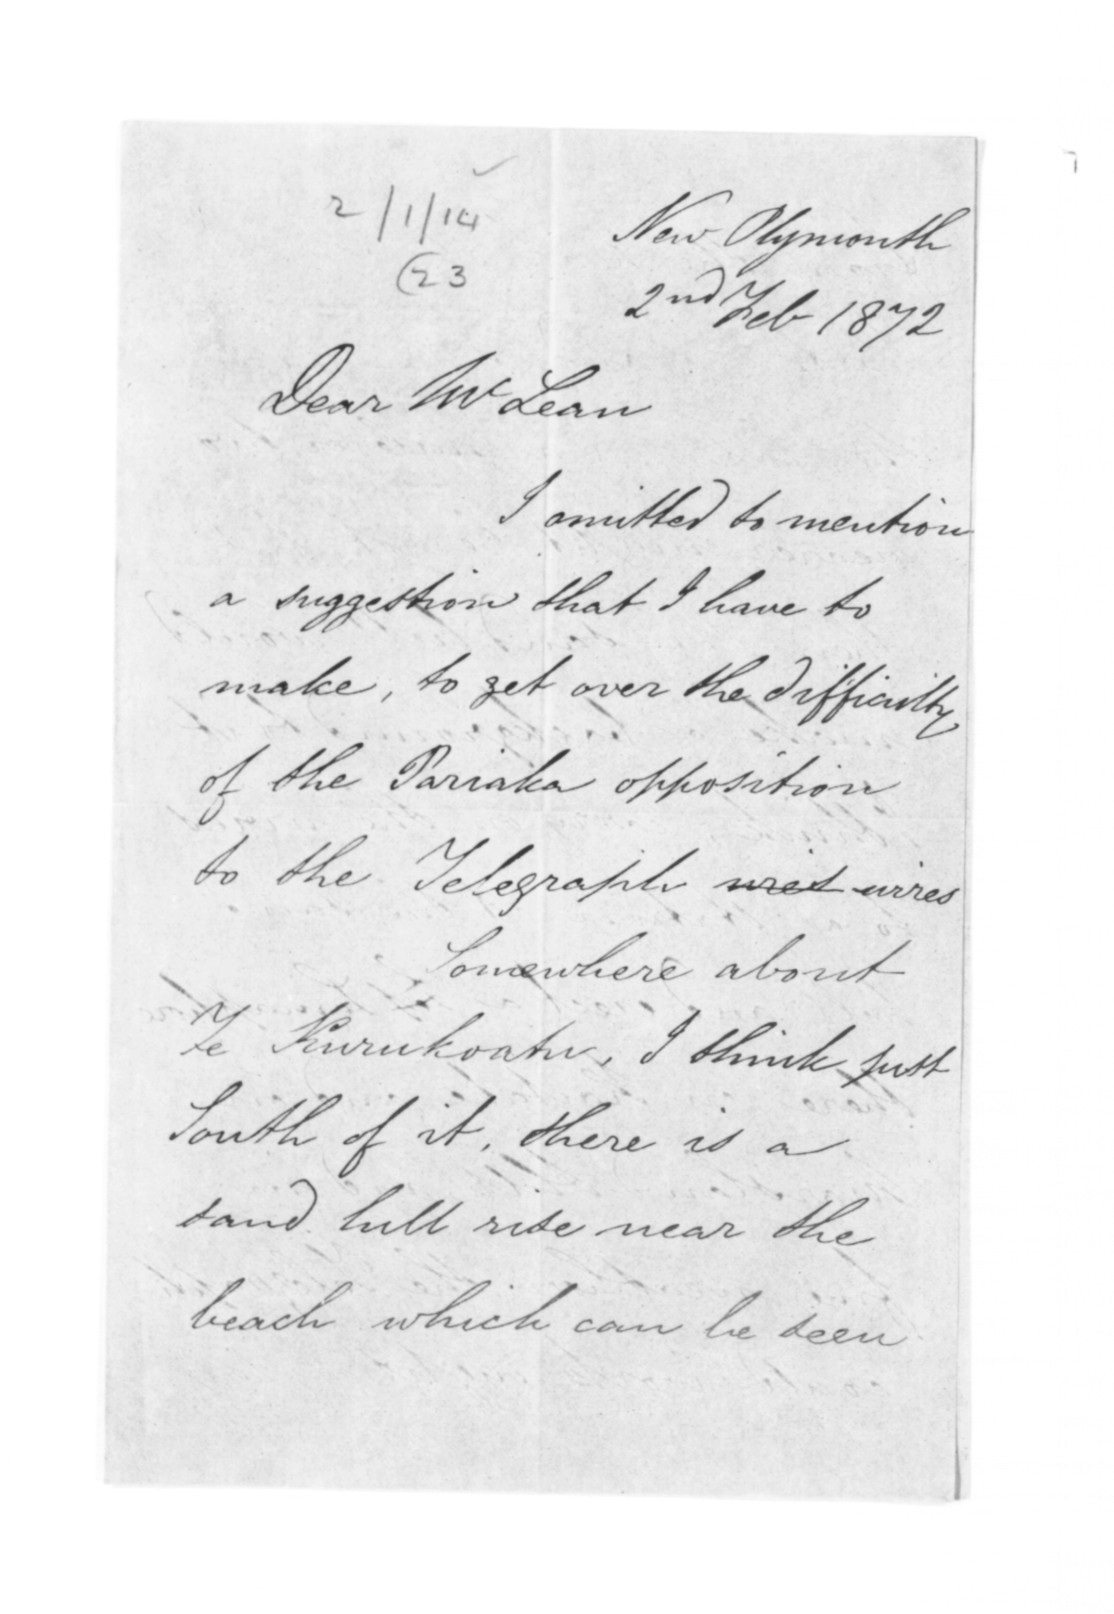 2/1/14
(23
New Plymouth
2nd Feb 1872
Dear McLean
I omitted to mention
a suggestion that I have to
make, to get over the difficulty
of the Pariaka opposition
to the Telegraph wires
Somewhere about
Te Kurukoatu, I think just
South of it, there is a
sand hill rise near the
beach which can be seen